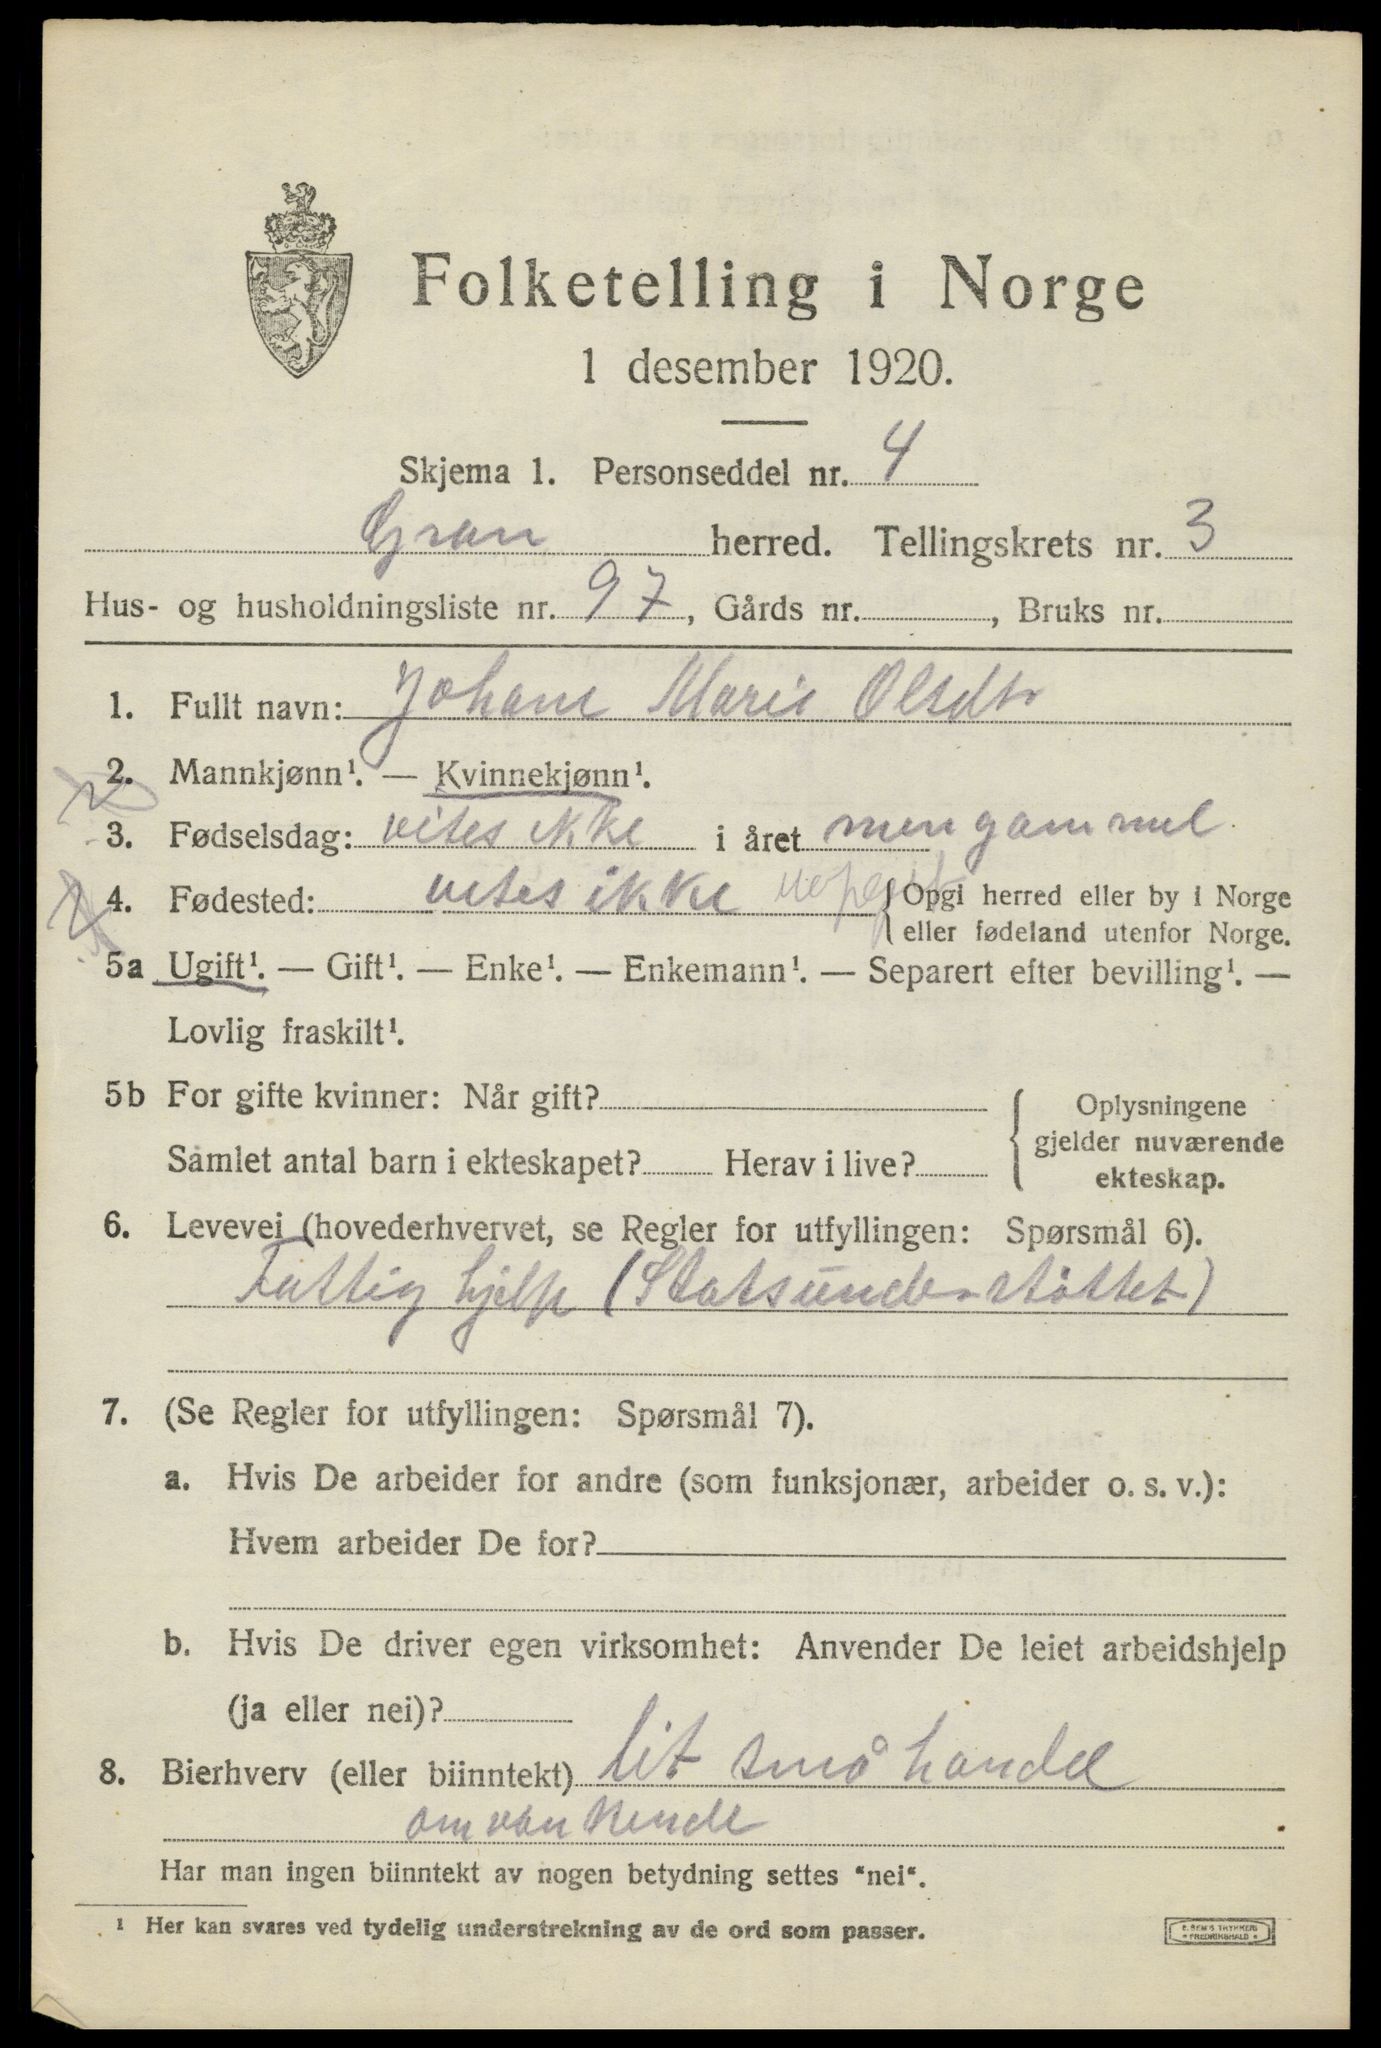 Folketelling i Norge
1 desember 1920.
Skjema 1. Personseddel nr. 4
Gran herred. Tellingskrets nr. 3
Hus- og husholdningsliste nr. 97, Gårds nr. , Bruks nr.
1. Fullt navn: Johane Marie Olsdtr
2. Mannkjønn¹. — Kvinnekjønn¹.
3. Fødselsdag: vites ikke i året men gammel.
4. Fødested: vites ikke uopgit { Opgi herred eller by i Norge
eller fødeland utenfor Norge.
5a Ugift¹. — Gift¹. — Enke¹. — Enkemann¹. — Separert efter bevilling¹. —
Lovlig fraskilt¹.
5b For gifte kvinner: Når gift? { Oplysningene
gjelder nuværende
Samlet antal barn i ekteskapet? Herav i live?
ekteskap.
6. Levevei (hovederhvervet, se Regler for utfyllingen: Spørsmål 6).
Fattighjelp (Statsunderstøttet)
7. (Se Regler for utfyllingen: Spørsmål 7).
a. Hvis De arbeider for andre (som funksjonær, arbeider o. s. v.):
Hvem arbeider De for?
b. Hvis De driver egen virksomhet: Anvender De leiet arbeidshjelp
(ja eller nei)?
8. Bierhverv (eller biinntekt) lit små handel
omvankende
Har man ingen biinntekt av nogen betydning settes "nei".
¹ Her kan svares ved tydelig understrekning av de ord som passer.
E. SEM'S TRYKKERI
FREDRIKSHALD